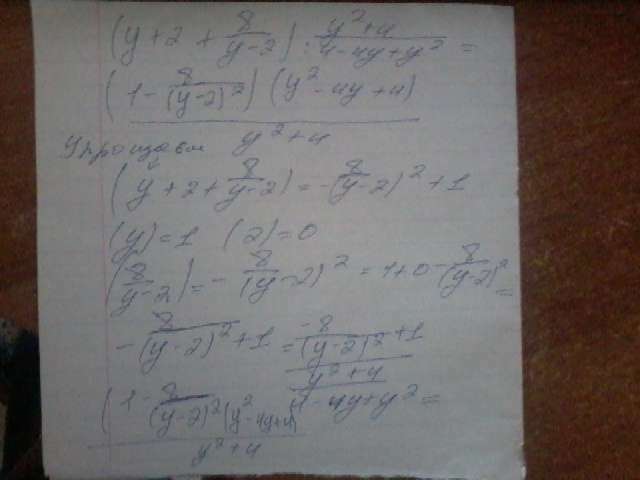 (y + 2 + 8/(y-2)) : (y²+4)/(4-4y+y²) =
(1 - 8/(y-2)²)(y² - 4y + 4)
y² + 4
(y + 2 + 8/(y-2)) = (8/(y-2)² + 1
(y) = 1 (2) = 0
(8/(y-2)) = - 8/(y-2)² = 1 + 0 - 8/(y-2)² =
- 8/(y-2)² + 1 = - 8/(y-2)² + 1
(1 - 8/(y-2)²)(y² - 4y+4)
y² + 4